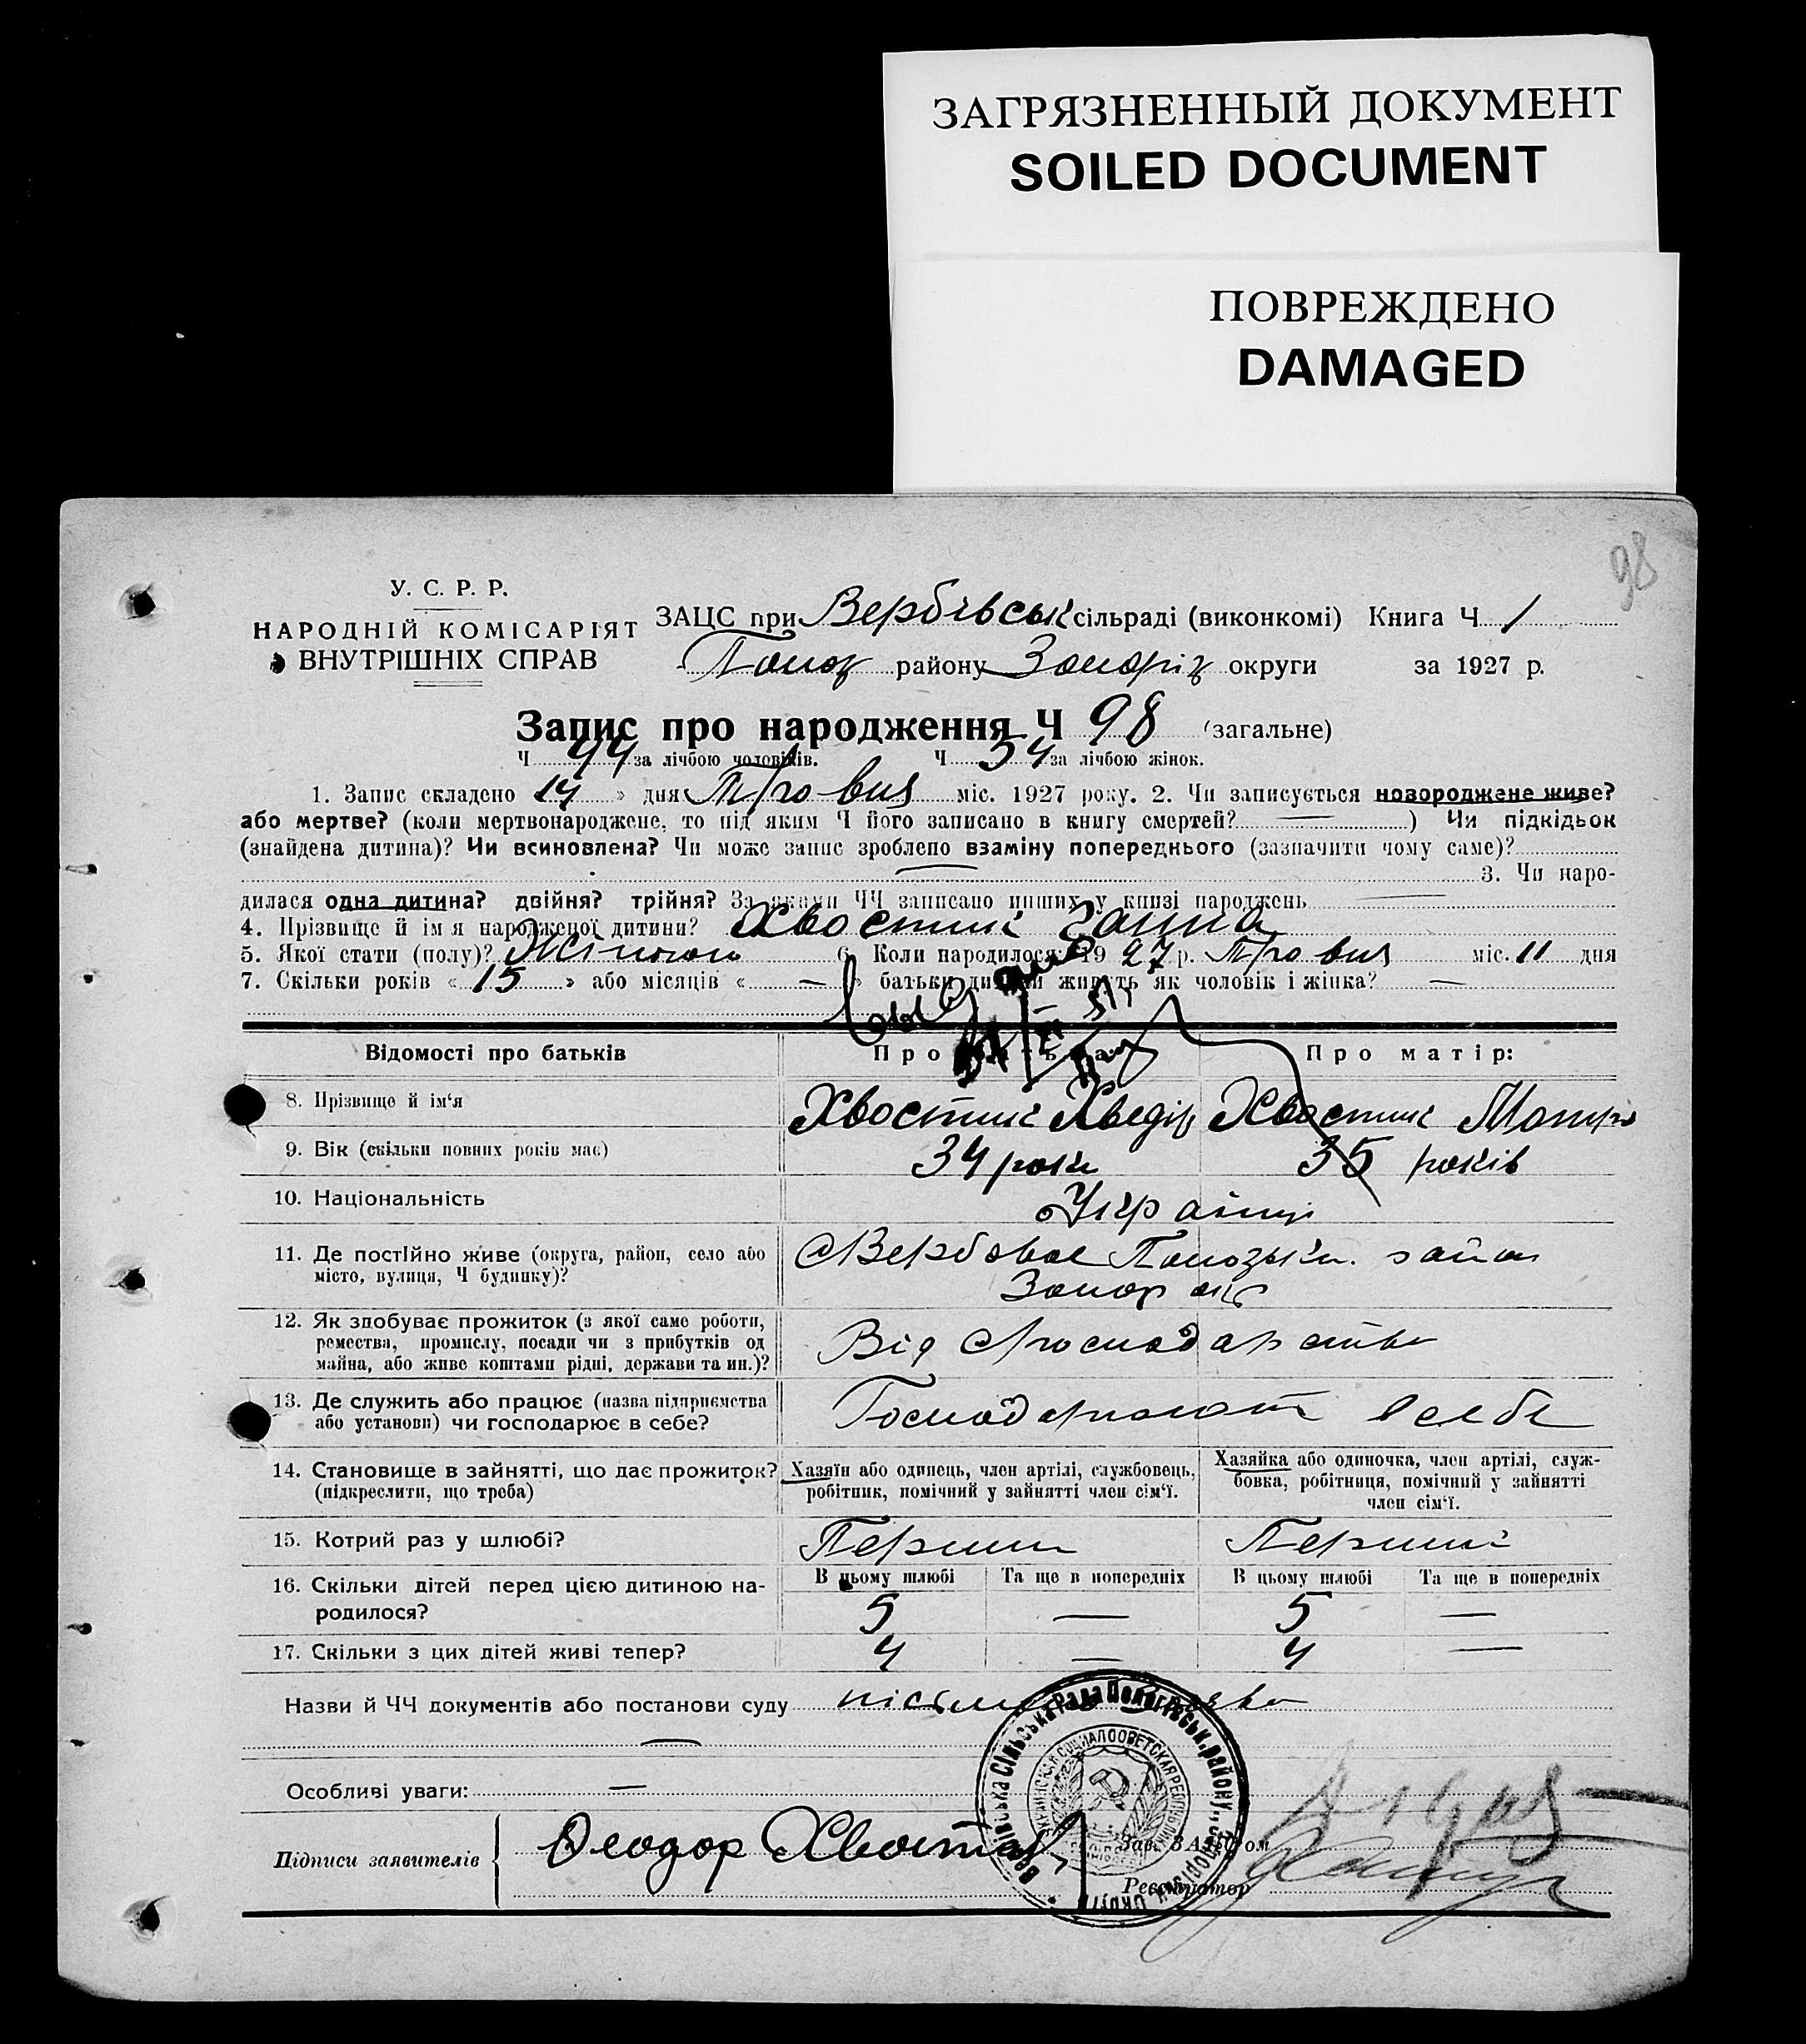 ЗАГРЯЗНЕННЫЙ ДОКУМЕНТ
SOILED DOCUMENT
ПОВРЕЖДЕНО
DAMAGED
98
У. С. Р. Р.
НАРОДНІЙ КОМІСАРІЯТ
ВНУТРІШНІХ СПРАВ
ЗАЦС при Вербівськ сільраді (виконкомі) Книга Ч 1
району Запоріз округи за 1927 р.
Запис про народження Ч 98 (загальне)
Ч 44 за лічбою чоловіків. Ч 54 за лічбою жінок.
1. Запис складено « 14 » дня Травня міс. 1927 року. 2. Чи записується новороджене живе?
або мертве? (коли мертвонароджене, то під яким Ч його записано в книгу смертей? — ) Чи підкідьок
(знайдена дитина)? Чи всиновлена? Чи може запис зроблено взаміну попереднього (зазначити чому саме)?
— 3. Чи наро-
дилася одна дитина? двійня? трійня? За якими ЧЧ записано инших у книзі народжень —
4. Прізвище й ім'я народженої дитини? Хвостик Ганна
5. Якої стати (полу)? Жіночої 6. Коли народилося: 1927 р. Травня міс. 11 дня
7. Скільки років « 15 » або місяців « — » батьки дитини живуть як чоловік і жінка? —
Відомості про батьків
Про батька:
Про матір:
8. Прізвище й ім'я
Хвостик Хведір
Хвостик Мотря
9. Вік (скільки повних років має)
34 роки
35 років
10. Національність
Українці
11. Де постійно живе (округа, район, село або
місто, вулиця, Ч будинку)?
с Вербове район
Запор окр
12. Як здобуває прожиток (з якої саме роботи,
ремества, промислу, посади чи з прибутків од
майна, або живе коштами рідні, держави та ин.)?
Від господарства
13. Де служить або працює (назва підприємства
або установи) чи господарює в себе?
Господарюють в себе
14. Становище в зайнятті, що дає прожиток?
(підкреслити, що треба)
Хазяїн або одинець, член артілі, службовець,
робітник, помічний у зайнятті член сім'ї.
Хазяйка або одиночка, член артілі, служ-
бовка, робітниця, помічний у зайнятті
член сім'ї.
15. Котрий раз у шлюбі?
Перший
Перший
16. Скільки дітей перед цією дитиною на-
родилося?
В цьому шлюбі Та ще в попередніх В цьому шлюбі Та ще в попередніх
5 — 5 —
17. Скільки з цих дітей живі тепер?
4 — 4 —
Назви й ЧЧ документів або постанови суду
—
Особливі уваги: —
Підписи заявителів
Феодор Хвостик
Зав. ЗАЦСом
Реєстратор
Вербівська Сільська Рада Пологівськ. району, Запорізьк. Округи